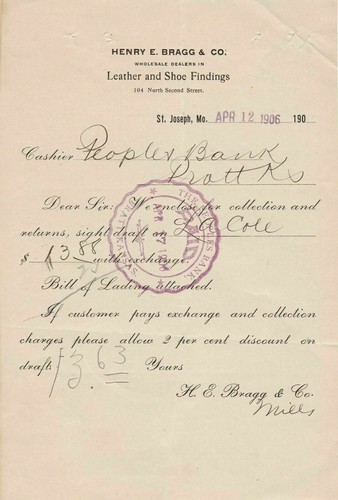 HENRY E. BRAGG & CO.
WHOLESALE DEALERS IN
Leather and Shoe Findings
104 North Second Street.
St. Joseph, Mo. APR 12 1906 190
Cashier Peoples Bank
Pratt Ks
Dear Sir: We enclose for collection and
returns, sight draft on L A Cole
$ 3.88 with exchange.
Bill of Lading attached.
If customer pays exchange and collection
charges please allow 2 per cent discount on
draft. 3.63 Yours
H. E. Bragg & Co.
Mills
THE PEOPLES BANK,
PAID
APR 17 1906
PRATT, KANSAS